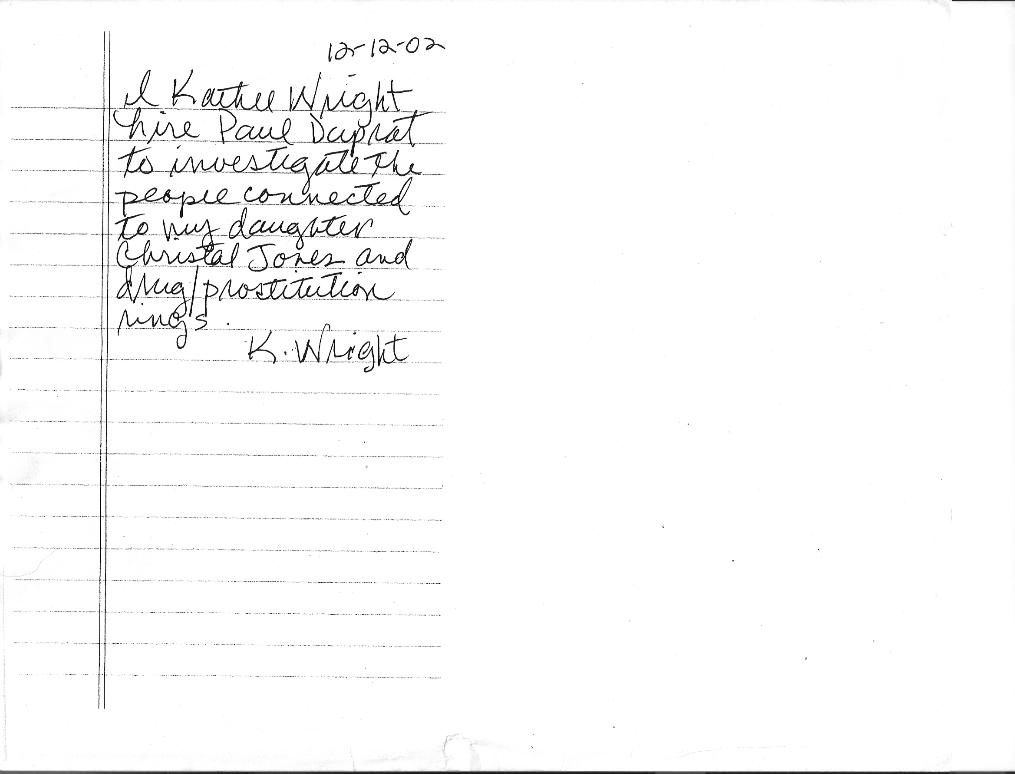 12-12-02
I Kathee Wright
hire Paul Duprat
to investigate the
people connected
to my daughter
Christal Jones and
drug/prostitution
rings.
K. Wright